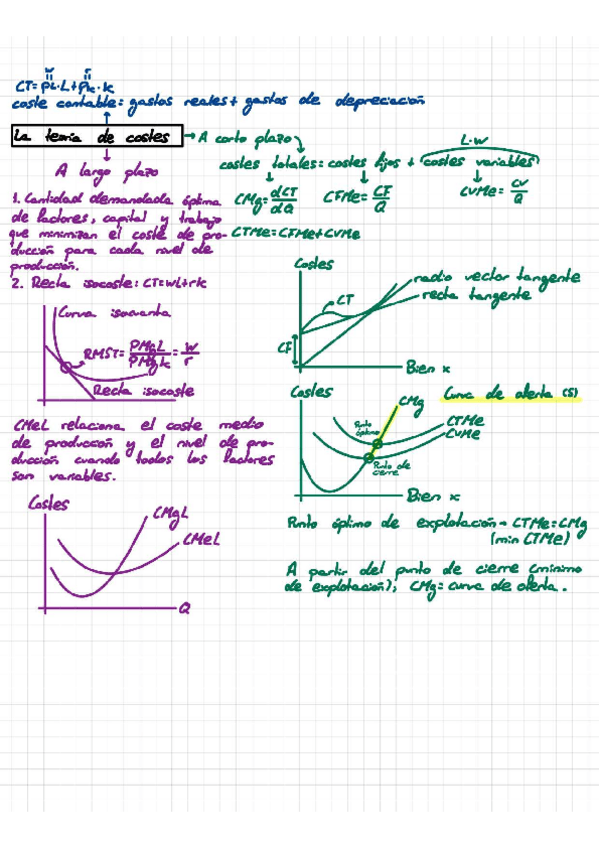 w r
CT= PL·L+Pk·k
coste contable: gastos reales+ gastos de depreciación
La teoría de costes → A corto plazo
L·w
costes totales= costes fijos + costes variables
CMg= dCT/dQ CFMe= CF/Q CVMe= CV/Q
CTMe=CFMe+CVMe
A largo plazo
1. Cantidad demandada óptima
de factores, capital y trabajo
que minimizan el coste de pro-
ducción para cada nivel de
producción.
2. Recta isocoste: CT=wL+rk
Curva isocuanta
RMST= PMgL/PMgk = w/r
Recta isocoste
CMeL relaciona el coste medio
de producción y el nivel de pro-
ducción cuando todos los factores
son variables.
Costes
CMgL
CMeL
Q
Costes
radio vector tangente
recta tangente
CT
CF
Bien x
Costes
CMg
Curva de oferta (S)
CTMe
CVMe
Punto
óptimo
Punto de
cierre
Bien x
Punto óptimo de explotación → CTMe=CMg
(min CTMe)
A partir del punto de cierre (mínimo
de explotación), CMg= curva de oferta.